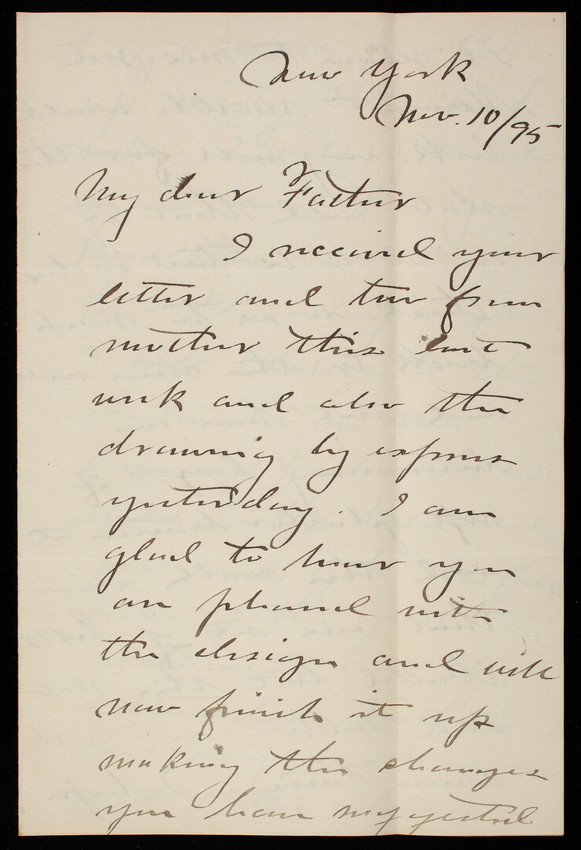 New York
Nov. 10/95
My dear Father
I received your
letter and two from
mother this last
week and also the
drawing by express
yesterday. I am
glad to hear you
are pleased with
the design and will
now finish it up
making the changes
you have suggested